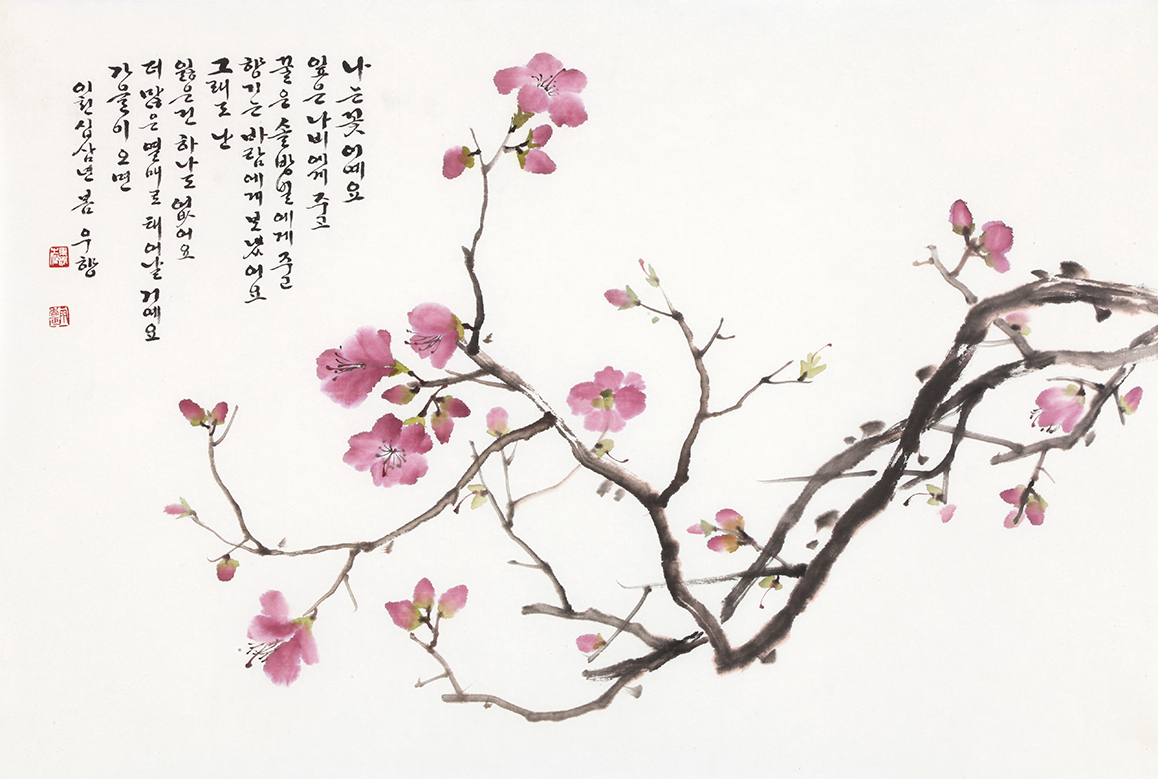 나는 꽃이예요
잎은 나비에게 주고
꿀은 솔방벌에게 주고
향기는 바람에게 보냈어요
그래도 난
잃은건 하나도 없어요
더 많은 열매로 태어날 거예요
가을이 오면
이천십삼년 봄 우향